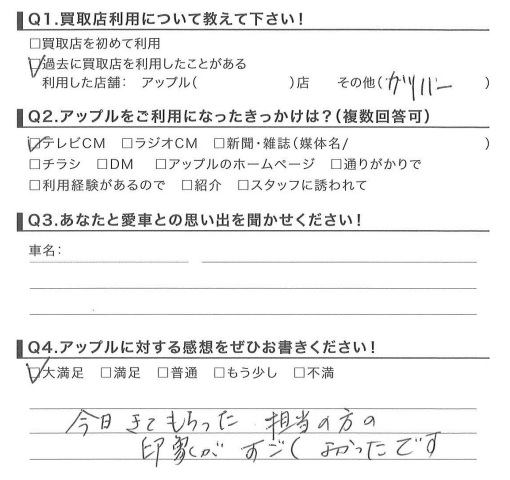 Q1.買取店利用について教えて下さい！
□買取店を初めて利用
☑過去に買取店を利用したことがある
利用した店舗： アップル（ ）店 その他（ ガリバー ）
Q2.アップルをご利用になったきっかけは？（複数回答可）
☑テレビCM □ラジオCM □新聞・雑誌（媒体名/ ）
□チラシ □DM □アップルのホームページ □通りがかりで
□利用経験があるので □紹介 □スタッフに誘われて
Q3.あなたと愛車との思い出を聞かせください！
車名：
Q4.アップルに対する感想をぜひお書きください！
☑大満足 □満足 □普通 □もう少し □不満
今日きてもらった 担当の方の
印象がすごくよかったです